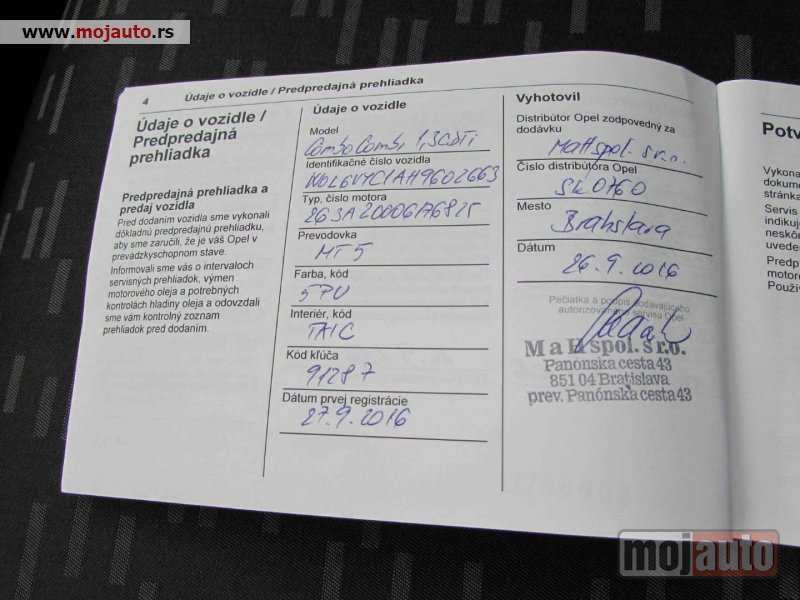 www.mojauto.rs
4 Údaje o vozidle / Predpredajná prehliadka
Údaje o vozidle /
Predpredajná
prehliadka
Predpredajná prehliadka a
predaj vozidla
Pred dodaním vozidla sme vykonali
dôkladnú predpredajnú prehliadku,
aby sme zaručili, že je váš Opel v
prevádzkyschopnom stave.
Informovali sme vás o intervaloch
servisných prehliadok, výmen
motorového oleja a potrebných
kontrolách hladiny oleja a odovzdali
sme vám kontrolný zoznam
prehliadok pred dodaním.
Údaje o vozidle
Model
Combo Combi 1,3CDTi
Identifikačné číslo vozidla
W0L6VYC1AH9602663
Typ, číslo motora
263A20006A76825
Prevodovka
MT5
Farba, kód
5PU
Interiér, kód
TAIC
Kód kľúča
91287
Dátum prvej registrácie
27.9.2016
Vyhotovil
Distribútor Opel zodpovedný za
dodávku
MaHspol. s r.o.
Číslo distribútora Opel
SK0760
Mesto
Bratislava
Dátum
26.9.2016
Pečiatka a podpis dodávajúceho
autorizovaného servisu Opel
M a H spol. s r.o.
Panónska cesta 43
851 04 Bratislava
prev. Panónska cesta 43
Potv
Vykona
dokume
stránka
Servis
indikuj
neskôr
uvede
Predp
motore
Použív
mojauto